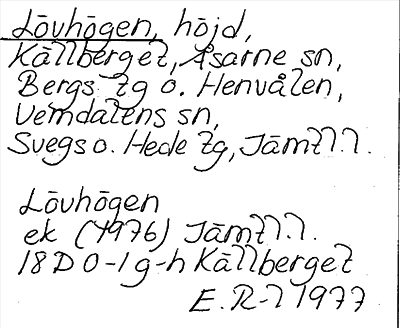 Lövhögen, höjd,
Källberget, Åsarne sn,
Bergs tg o. Henvålen,
Vemdalens sn,
Svegs o. Hede tg, Jämtl.l.
Lövhögen
ek (1976) Jämtl.l.
18D 0-1 g-h Källberget
E. R-l 1977